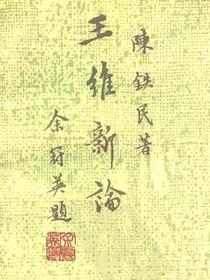 陳鉄民著
王維新論
余冠英題